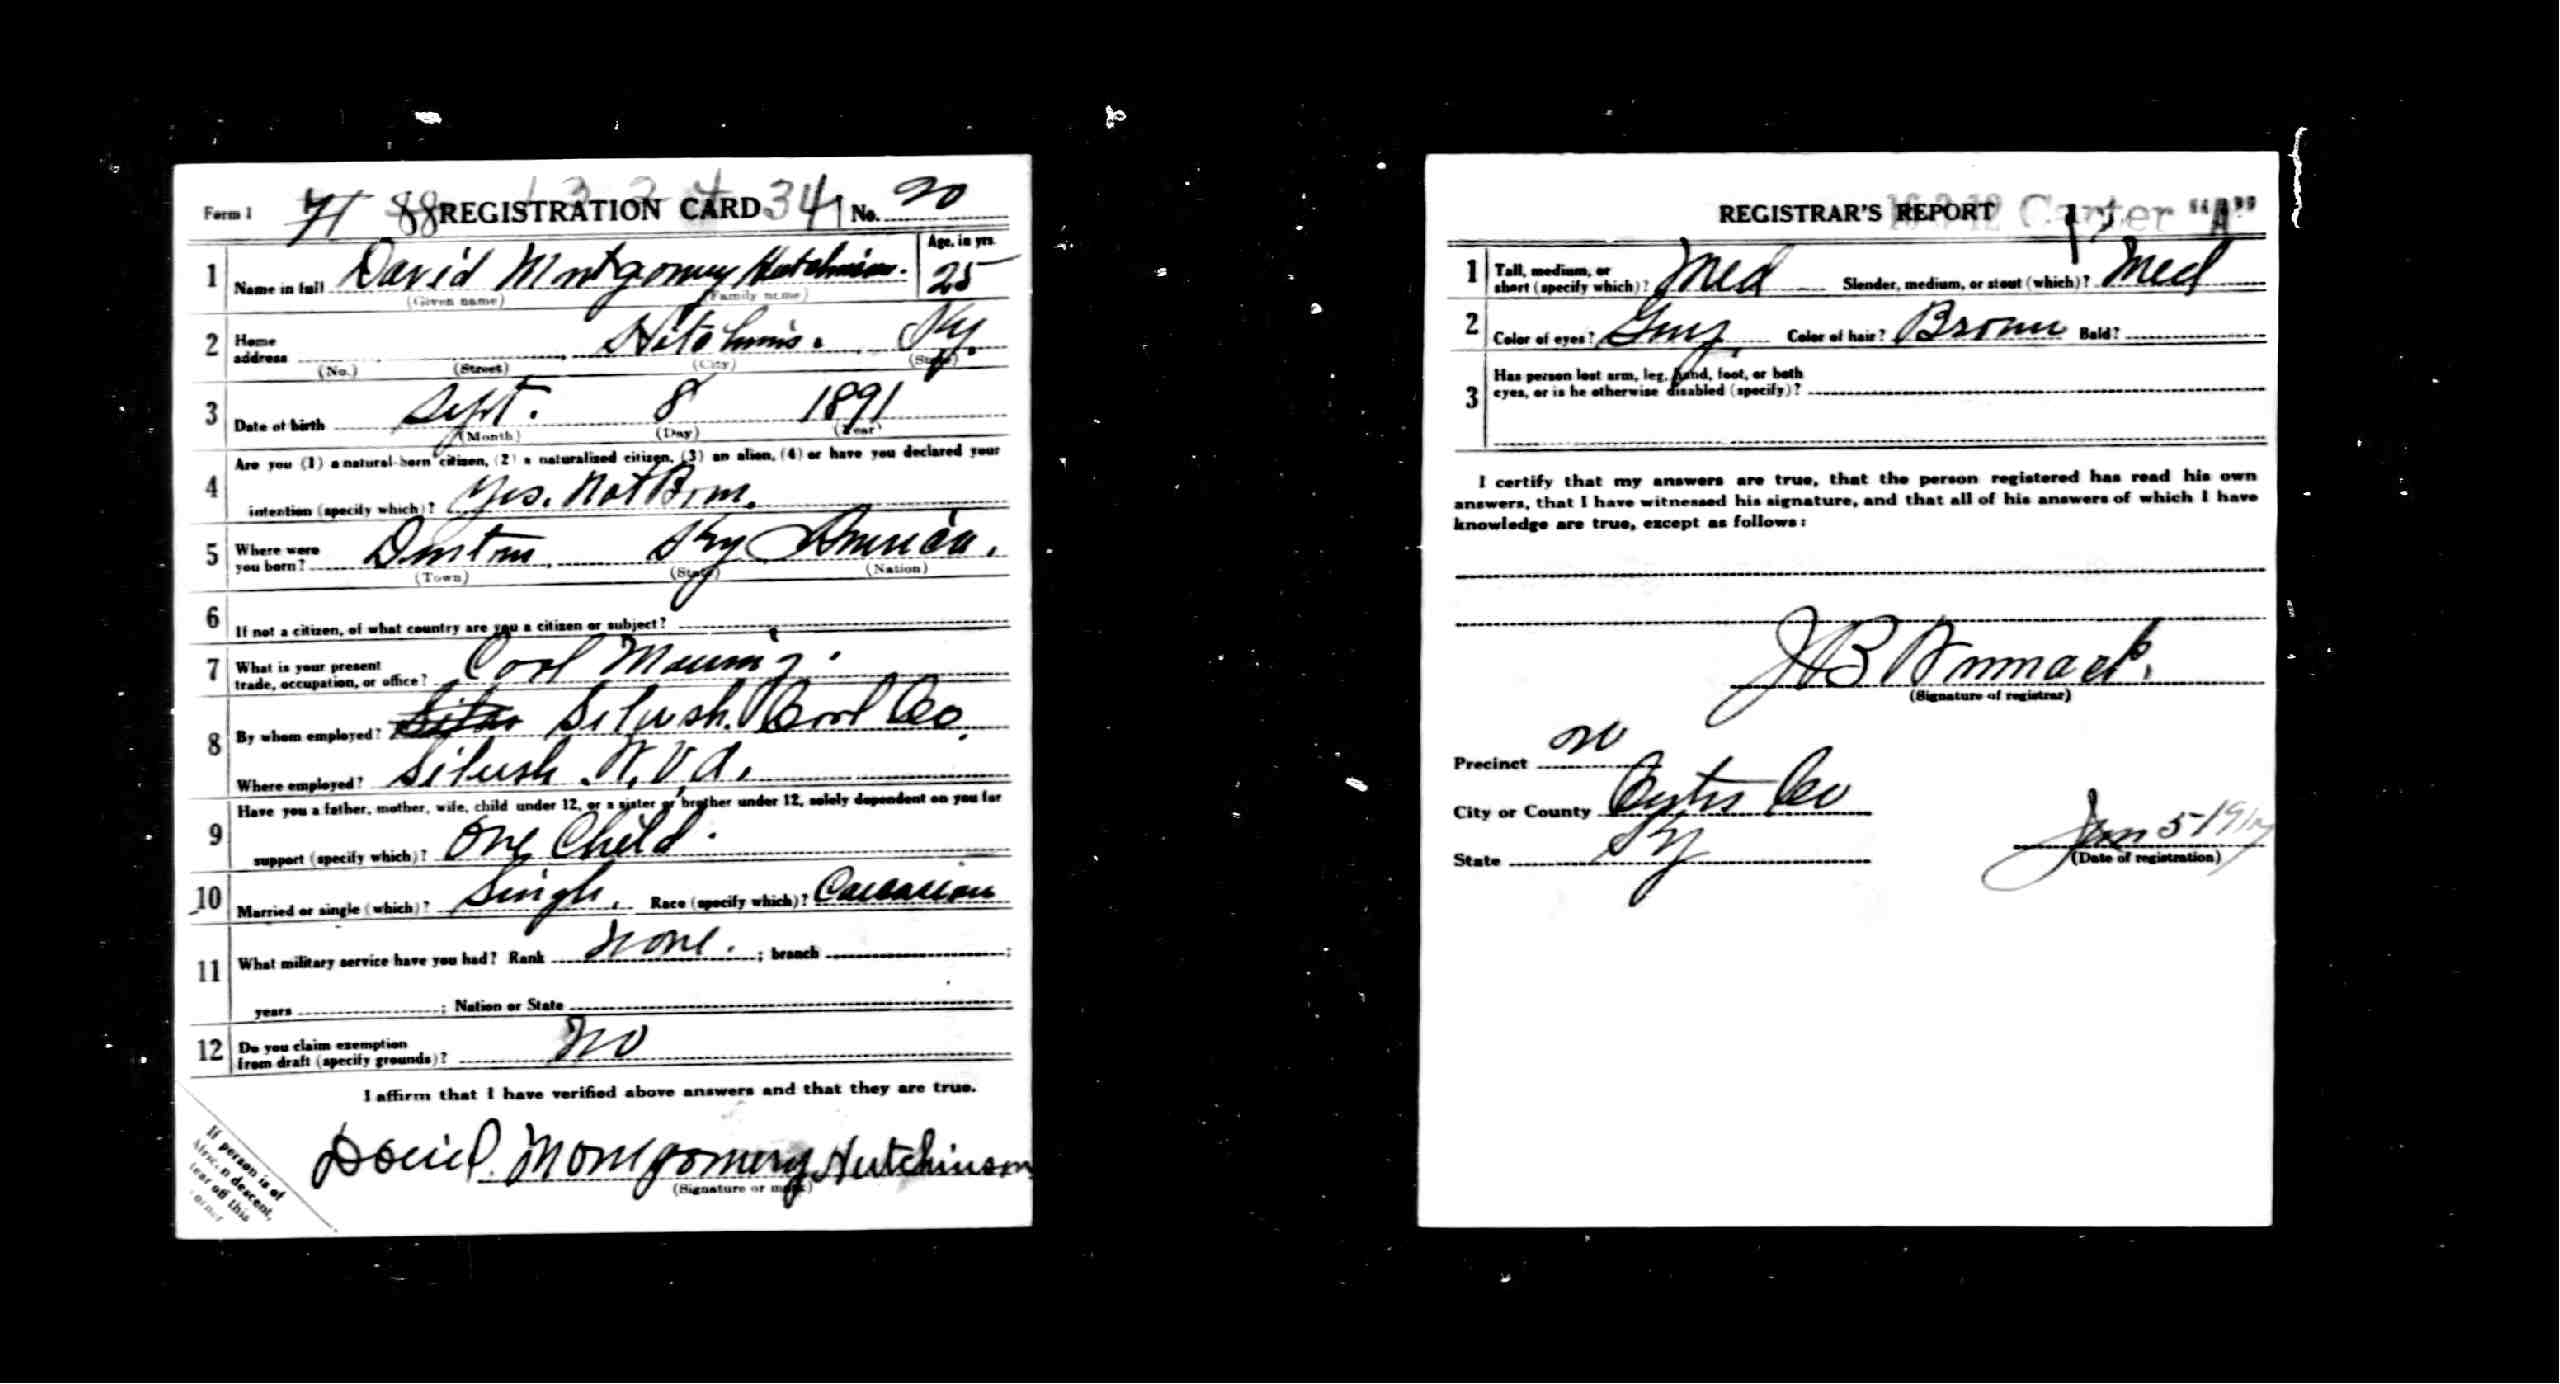 Form 1 71 88 REGISTRATION CARD 341 No. 20
1 Name in full David Montgomery Hutchinson. Age, in yrs. 25
(Given name) (Family name)
2 Home address Hitchins. Ky.
(No.) (Street) (City) (State)
3 Date of birth Sept. 8 1891
(Month) (Day) (Year)
4 Are you (1) a natural-born citizen, (2) a naturalized citizen, (3) an alien, (4) or have you declared your
intention (specify which)? Yes. Nat Born.
5 Where were you born? Denton, Ky America.
(Town) (State) (Nation)
6 If not a citizen, of what country are you a citizen or subject?
7 What is your present
trade, occupation, or office? Coal Mining.
8 By whom employed? Silush. Coal Co.
Where employed? Silush W. Va.
9 Have you a father, mother, wife, child under 12, or a sister or brother under 12, solely dependent on you for
support (specify which)? One Child.
10 Married or single (which)? Single. Race (specify which)? Caucasian
11 What military service have you had? Rank None. ; branch ;
years ; Nation or State
12 Do you claim exemption
from draft (specify grounds)? No
I affirm that I have verified above answers and that they are true.
David. Montgomery Hutchinson
(Signature or mark)
If person is of
African descent,
tear off this
corner
REGISTRAR'S REPORT 16-3-12 Carter "A"
1 Tall, medium, or
short (specify which)? Med Slender, medium, or stout (which)? Med
2 Color of eyes? Gray Color of hair? Brown Bald?
3 Has person lost arm, leg, hand, foot, or both
eyes, or is he otherwise disabled (specify)?
I certify that my answers are true, that the person registered has read his own
answers, that I have witnessed his signature, and that all of his answers of which I have
knowledge are true, except as follows:
J B Womack.
(Signature of registrar)
Precinct 20
City or County Carter Co
State Ky
Jun 5-1917
(Date of registration)